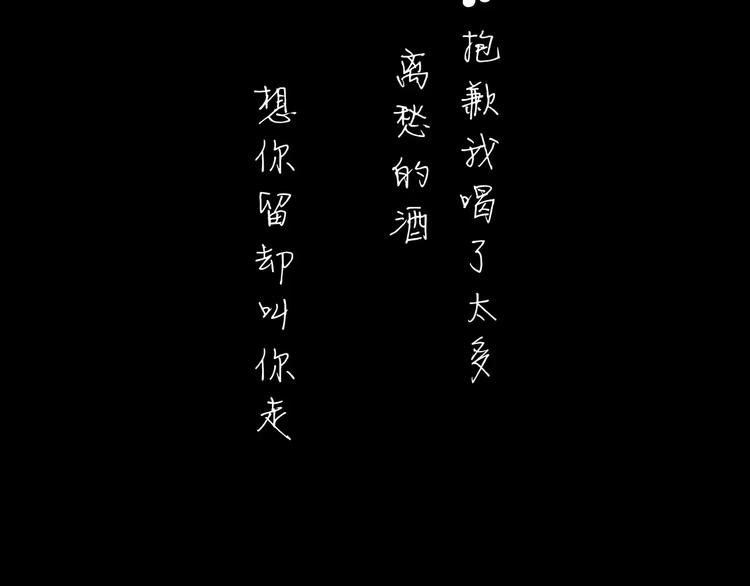 抱歉我喝了太多
离愁的酒
想你留却叫你走